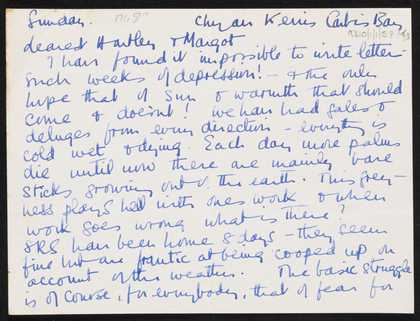 Sunday. Chy an Kerris Carbis Bay
dearest Hartley & Margot
I have found it impossible to write letter -
such weeks of depression! - & the only
hope that of sun & warmth that should
come & doesn't! We have had gales &
deluges from every direction - everything is
cold wet & dying. Each day more palms
die until now there are mainly bare
sticks growing out of the earth. This grey-
ness plays hell with ones work & when
work goes wrong what is there?
SRS have been home 8 days - they seem
fine but are frantic at being cooped up on
account of this weather. The basic struggle
is of course, for everybody, that of fear for